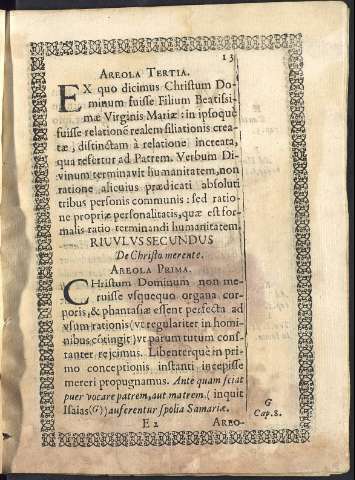 13
AREOLA TERTIA.
EX quo dicimus Christum Do-
minum fuisse Filium Beatissi-
mæ Virginis Mariæ: in ipsoque
fuisse relationé realem filiationis crea-
tæ, distinctam à relatione increata,
qua refertur ad Patrem. Verbum Di-
vinum terminavit humanitatem, non
ratione alicuius prædicati absoluti
tribus personis communis: sed ratio-
ne propriæ personalitatis, quæ est for-
malis ratio terminandi humanitatem.
RIUULUS SECUNDUS
De Christo merente.
AREOLA PRIMA.
CHristum Dominum non me-
ruisse vsquequo organa cor-
poris, & phantasiæ essent perfecta ad
vsum rationis (vt regulariter in homi-
nibus cótingit) vt parum tutum cons-
tanter reijcimus. Libenterquè in pri-
mo conceptionis instanti incepisse
mereri propugnamus. Ante quam sciat
puer vocare patrem, aut matrem. (inquit
Isaias (G)) auferentur spolia Samariæ.
G
Cap. 8.
E 2
AREO-